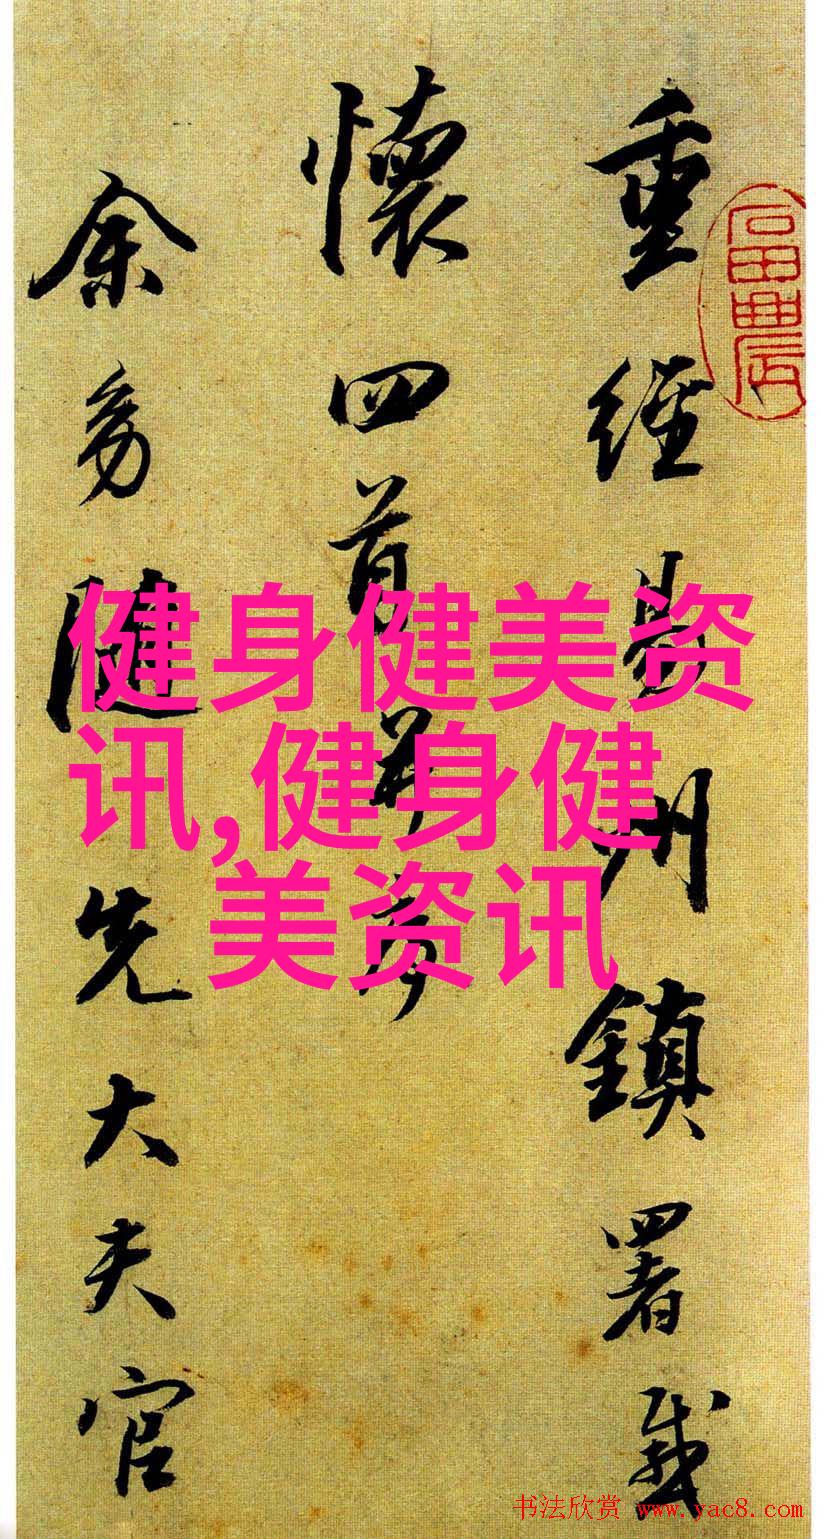 重經易州鎮署感
懷四首并序
余幼隨先大夫官
健身健美资
讯,健身健
美资讯
书法欣赏 www.yac8.com